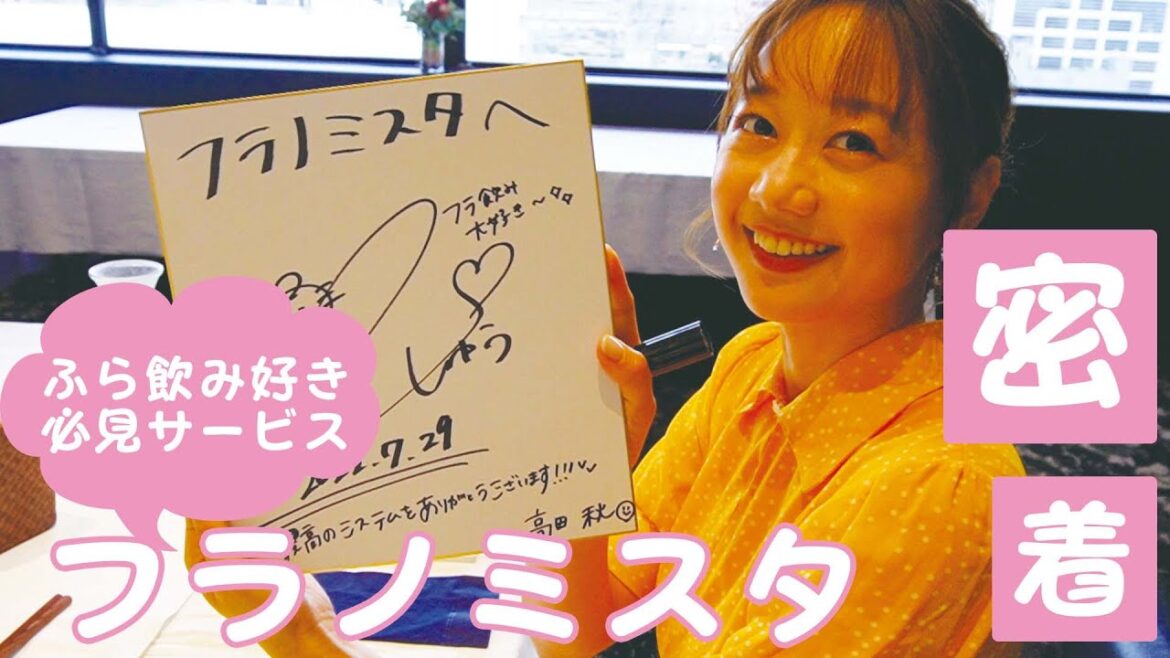 フラノミスタへ
フラ飲み
大好き～
しゅう
7.29
最高のシステムをありがとうございます!!!
高田 秋
ふら飲み好き
必見サービス
フラノミスタ
密
着